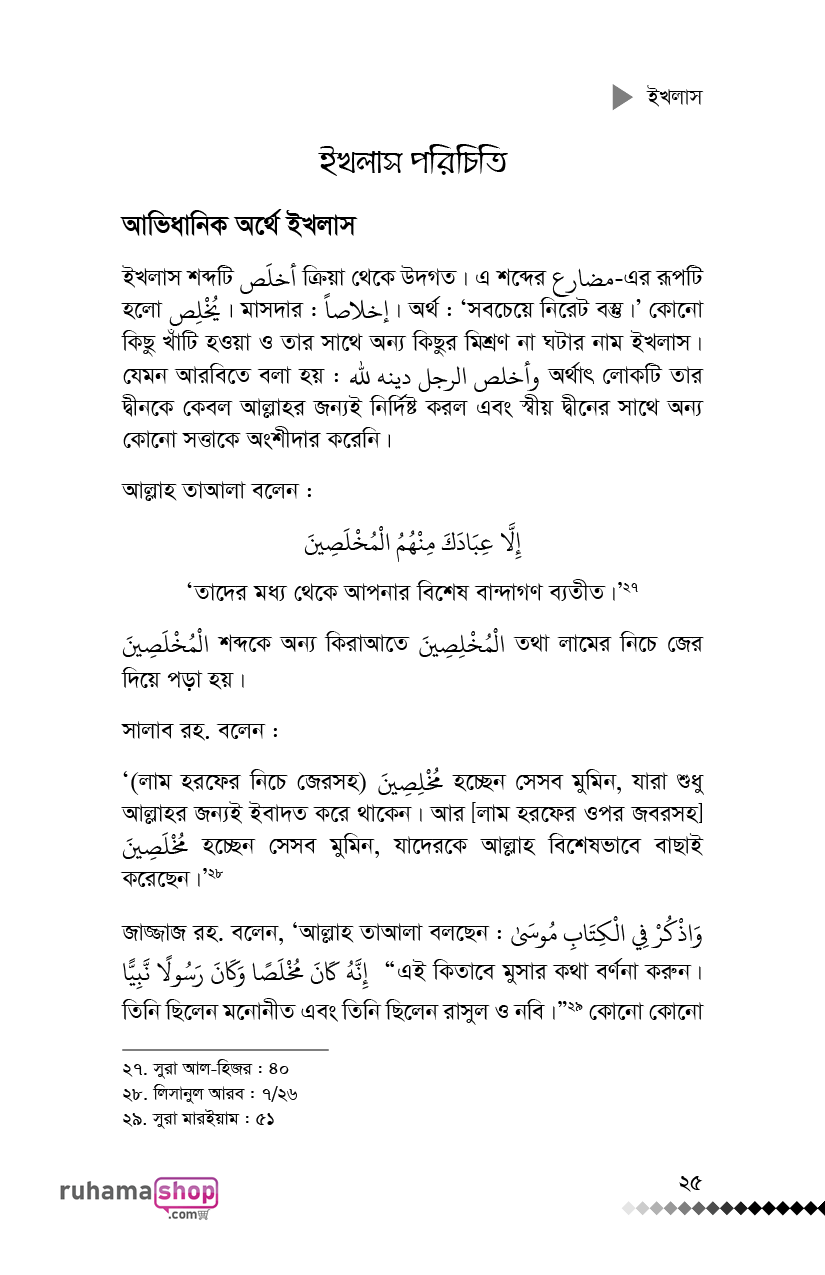 ইখলাস
ইখলাস পরিচিতি
আভিধানিক অর্থে ইখলাস
ইখলাস শব্দটি أخلَص ক্রিয়া থেকে উদগত। এ শব্দের مضارع-এর রূপটি
হলো يُخْلِص । মাসদার : إخلاصاً। অর্থ : ‘সবচেয়ে নিরেট বস্তু।’ কোনো
কিছু খাঁটি হওয়া ও তার সাথে অন্য কিছুর মিশ্রণ না ঘটার নাম ইখলাস।
যেমন আরবিতে বলা হয় : وأخلص الرجل دينه لله অর্থাৎ লোকটি তার
দ্বীনকে কেবল আল্লাহর জন্যই নির্দিষ্ট করল এবং স্বীয় দ্বীনের সাথে অন্য
কোনো সত্তাকে অংশীদার করেনি।
আল্লাহ তাআলা বলেন :
إِلَّا عِبَادَكَ مِنْهُمُ الْمُخْلَصِينَ
‘তাদের মধ্য থেকে আপনার বিশেষ বান্দাগণ ব্যতীত।’২৭
الْمُخْلَصِينَ শব্দকে অন্য কিরাআতে الْمُخْلِصِينَ তথা লামের নিচে জের
দিয়ে পড়া হয়।
সালাব রহ. বলেন :
‘(লাম হরফের নিচে জেরসহ) مُخْلِصِينَ হচ্ছেন সেসব মুমিন, যারা শুধু
আল্লাহর জন্যই ইবাদত করে থাকেন। আর [লাম হরফের ওপর জবরসহ]
مُخْلَصِينَ হচ্ছেন সেসব মুমিন, যাদেরকে আল্লাহ বিশেষভাবে বাছাই
করেছেন।’২৮
জাজ্জাজ রহ. বলেন, ‘আল্লাহ তাআলা বলছেন : وَاذْكُرْ فِي الْكِتَابِ مُوسَىٰ
إِنَّهُ كَانَ مُخْلَصًا وَكَانَ رَسُولًا نَّبِيًّا “এই কিতাবে মুসার কথা বর্ণনা করুন।
তিনি ছিলেন মনোনীত এবং তিনি ছিলেন রাসুল ও নবি।”২৯ কোনো কোনো
২৭. সুরা আল-হিজর : ৪০
২৮. লিসানুল আরব : ৭/২৬
২৯. সুরা মারইয়াম : ৫১
২৫
ruhamashop
.com